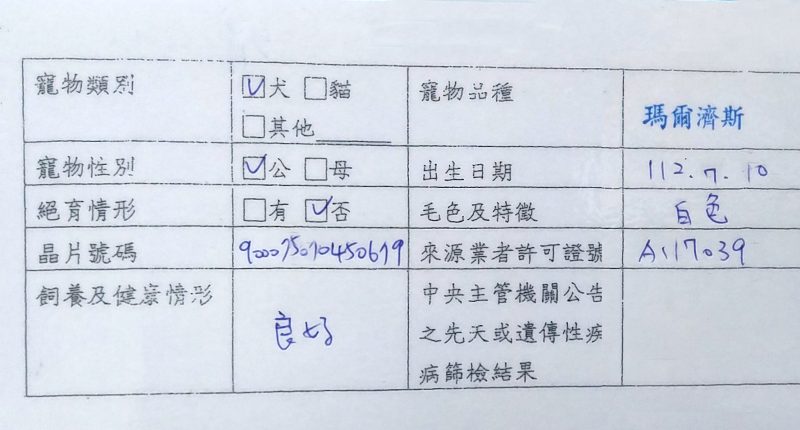 寵物類別 ☑犬 □貓 寵物品種 瑪爾濟斯
□其他______
寵物性別 ☑公 □母 出生日期 112.7.10
絕育情形 □有 ☑否 毛色及特徵 白色
晶片號碼 來源業者許可證號 A117039
飼養及健康情形 良好 中央主管機關公告
之先天或遺傳性疾
病篩檢結果